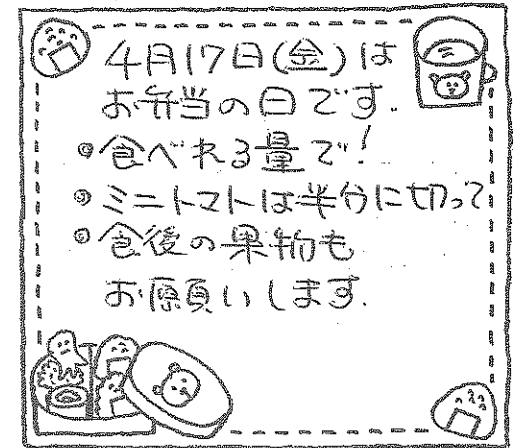 4月17日(金)は
お弁当の日です.
◎食べれる量で!
◎ミニトマトは半分に切って
◎食後の果物も
お願いします.